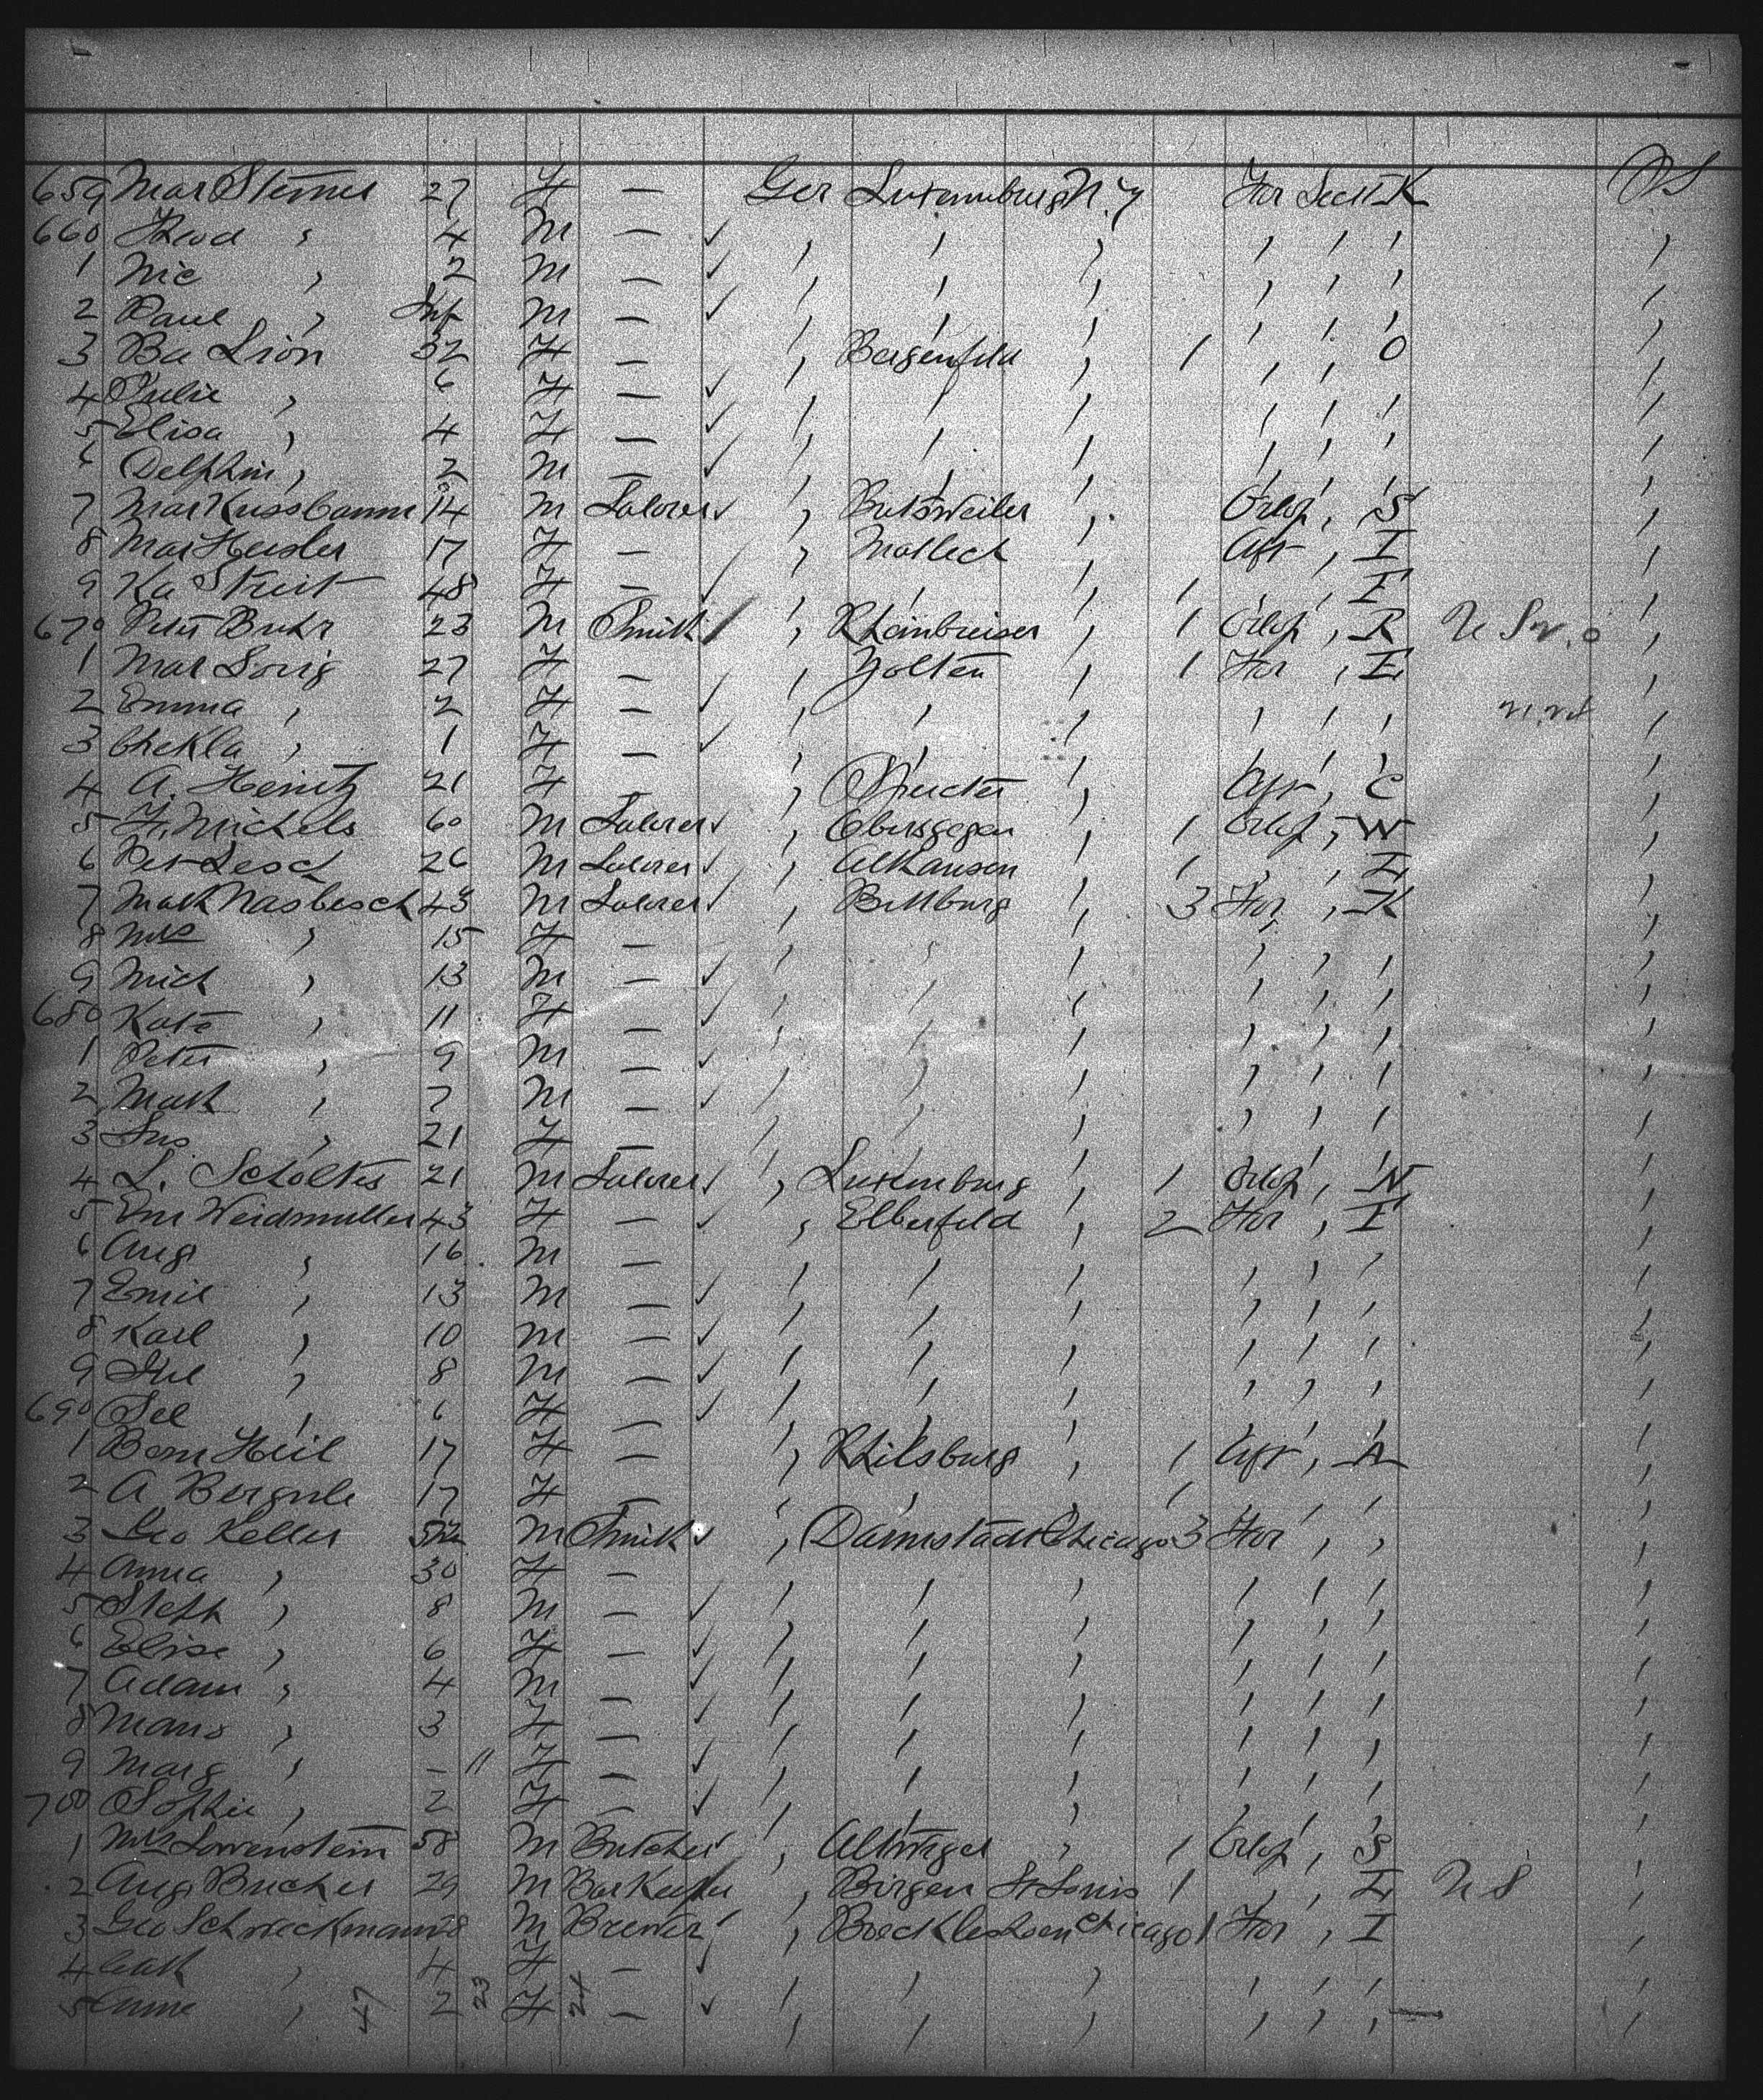 659 Mar Steines 27 F — Ger Luxemburg N.Y For Sect K
660 Theod " 4 M — ✓ " " " " " " "
1 Nic " 2 M — ✓ " " " " " " "
2 Paul " Inf M — ✓ " " " " " " "
3 Ba Lion 32 F — " Bergenfeld " 1 " " O "
4 Julie " 6 F — ✓ " " " " " " "
5 Elisa " 4 F — ✓ " " " " " " "
6 Delphin " 2 M — ✓ " " " " " " "
7 Mar Kussbaum 14 M Laborer ✓ " Butsweiler " Orlop " S "
8 Mar Hersler 17 F — " " Aft " I "
9 Ka Streit 48 F — ✓ " " " 1 " " I "
670 Peter Buhr 23 M Smith " " 1 Orlop " R "
1 Mar Sorig 27 F — " Yolten " 1 For " I "
2 Emma " 2 F — ✓ " " " " " " "
3 Thekla " 1 F — ✓ " " " " " " "
4 A. Heintz 21 F — " " Aft " C "
5 H. Michels 60 M Laborer ✓ " Obersgegen " 1 Orlop " W "
6 Pet Lesch 26 M Laborer ✓ " Alkausen " 1 " " I "
7 Math Nasbesch 43 M Laborer ✓ " Bittburg " 3 For " K "
8 Mrs " 15 F — " " " " " " "
9 Mich " 13 M — ✓ " " " " " " "
680 Kate " 11 F — ✓ " " " " " " "
1 Peter " 9 M — ✓ " " " " " " "
2 Math " 7 M — ✓ " " " " " " "
3 Sus " 21 F — " " " " " " "
4 L. Scholtes 21 M Laborer ✓ " Luxemburg " 1 Orlop " N "
5 Em Weidmuller 43 F — ✓ " Elberfeld " 2 For " I "
6 Aug " 16 M — " " " " " " "
7 Emil " 13 M — ✓ " " " " " " "
8 Karl " 10 M — ✓ " " " " " " "
9 Jul " 8 M — ✓ " " " " " " "
690 Sel " 6 F — ✓ " " " " " " "
1 Bern Heil 17 F — " Philsburg " 1 Aft " A "
2 A 17 F — " " " 1 " " " "
3 Geo Keller M Smith ✓ " Darmstadt Chicago 3 For " " "
4 Anna " 30 F — " " " " " " "
5 Steph " 8 M — ✓ " " " " " " "
6 Elise " 6 F — ✓ " " " " " " "
7 Adam " 4 M — ✓ " " " " " " "
8 " 3 F — ✓ " " " " " " "
9 Marg " — 11 F — ✓ " " " " " " "
700 Sophie " 2 F — ✓ " " " " " " "
1 Lowenstein 58 M Butcher ✓ " " 1 Orlop " S "
2 Aug Bucher 29 M Barkeeper " Birgen St Louis 1 " " I U S "
3 Geo Schweckmann 28 M Brewer " Chicago 1 For " I "
4 Cath " 4 F — ✓ " " " " " " "
5 Anna " 2 F — ✓ " " " " " " "
47 23 24